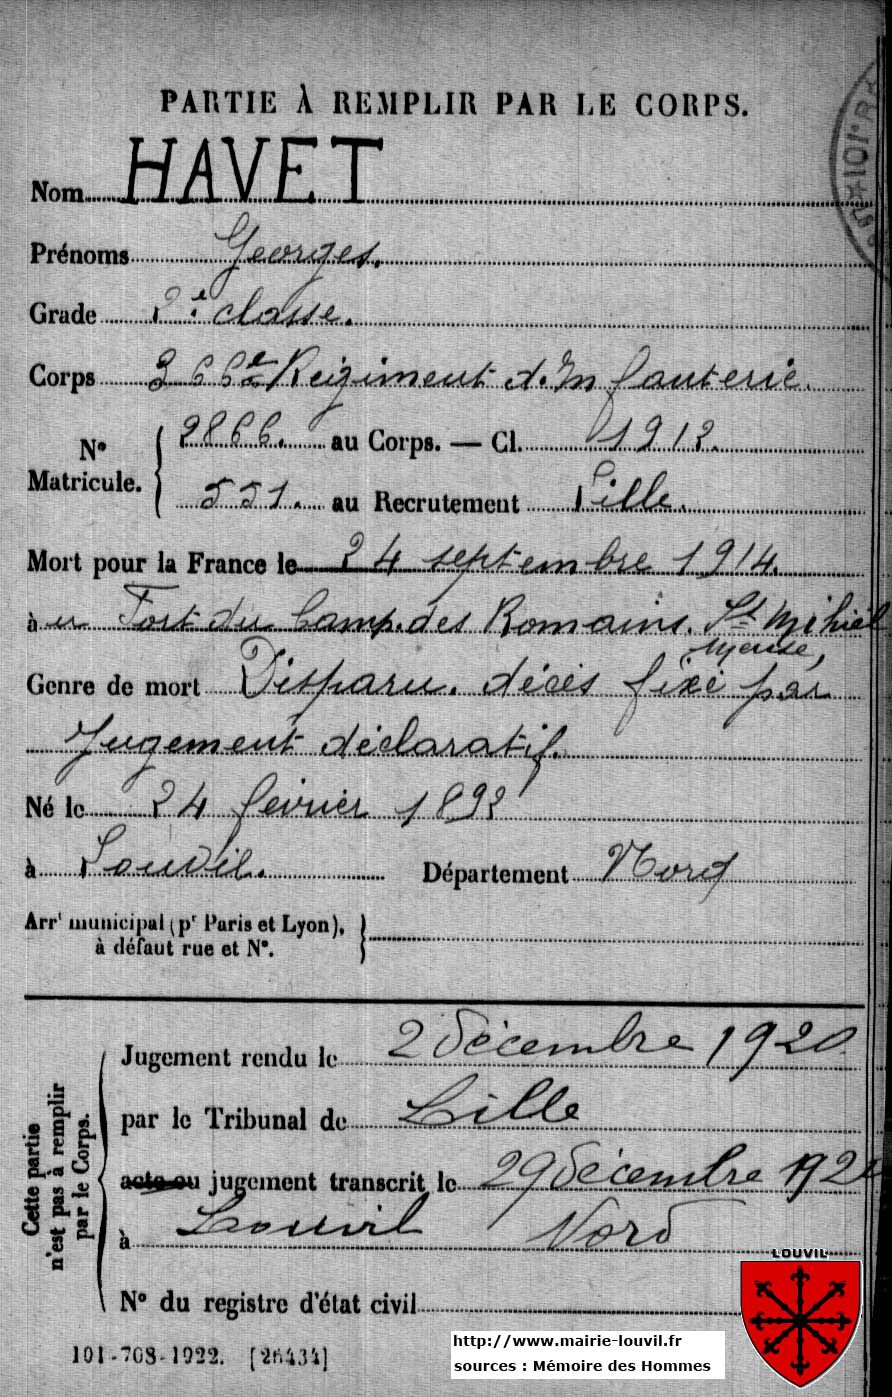 PARTIE À REMPLIR PAR LE CORPS.
Nom HAVET
Prénoms Georges.
Grade 2e classe.
Corps 366e Régiment d'Infanterie.
No Matricule. 2866. au Corps. — Cl. 1912.
551. au Recrutement Lille.
Mort pour la France le 24 septembre 1914.
à u Fort du Camp des Romains. St Mihiel
Meuse,
Genre de mort Disparu. décès fixé par
Jugement déclaratif.
Né le 24 février 1892
à Louvil. Département Nord
Arrt municipal (pr Paris et Lyon),
à défaut rue et No.
Cette partie
n'est pas à remplir
par le Corps.
Jugement rendu le 2 décembre 1920
par le Tribunal de Lille
acte ou jugement transcrit le 29 décembre
à Louvil Nord
No du registre d'état civil
101-708-1922. [26434]
LOUVIL
http://www.mairie-louvil.fr
sources : Mémoire des Hommes